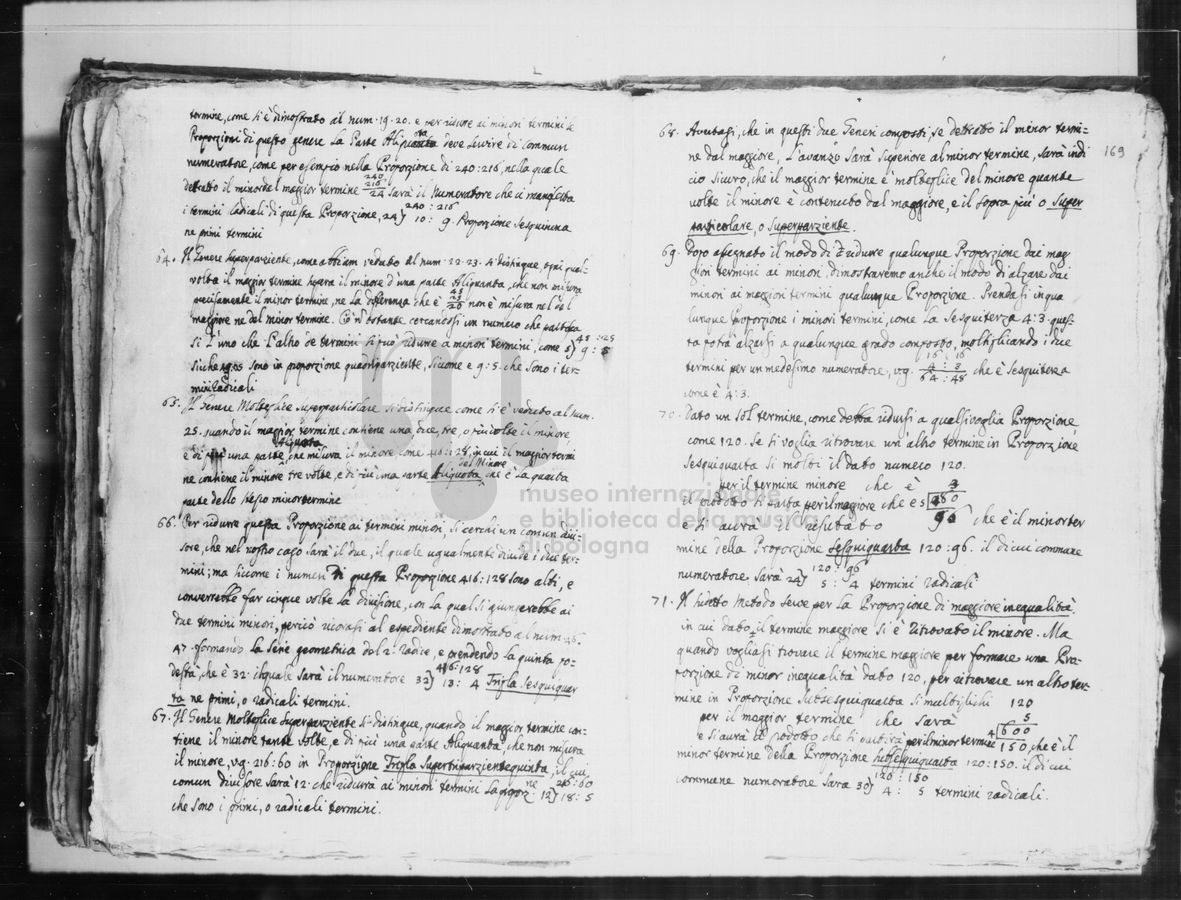 termine, come si è dimostrato al num. 19. 20. e per ridure ai minori termini le
Proporzioni di questo genere la Parte Aliquota deve servire di commun
numeratore, come per esempio nella Proporzione di 240:216, nella quale
detratto il minor dal maggior termine 240 216 24 sarà il Numeratore che ci manifesta
i termini radicali di questa Proporzione, 24) 240:216 10: 9. Proporzione Sesquinona
ne primi termini
64. Il Genere Superparziente, come abbiam veduto al num. 22. 23. si distingue, ogni qual
volta il maggior termine supera il minore d'una parte Aliquanta, che non misura
precisamente il minor termine, ne la differenza che è 45 25 20 non è misura ne del
maggiore ne del minor termine. Ciò n'ostante cercandosi un numero che partisca
si l'uno che l'altro de termini si può ridurre a minori termini, come 5) 45:25 9:5
sicche sono in proporzione quadriparziente, siccome e 9:5. che sono i ter-
mini Radicali
65. Il Genere Molteplice Superparticolare si distingue come si è veduto al num.
25. quando il maggior termine contiene una, due, tre, o più volte il minore,
e di più una parte Aliquota che misura il minore come 416:128, in cui il maggior termi
ne contiene il minore tre volte, e di più una parte Aliquota del Minore che è la quarta
parte dello stesso minor termine
66. Per ridurre questa Proporzione ai termini minori, si cerchi un comun divi-
sore, che nel nostro caso sarà il due, il quale ugualmente divide i due ter-
mini; ma siccome i numeri di questa Proporzione 416:128 sono alti, e
converrebbe far cinque volte la divisione, con la qual si giungerebbe ai
due termini minori, perciò ricorasi al espediente dimostrato al num. 46.
47. formando la Serie geometrica del 2. radice, e prendendo la quinta po-
destà, che è 32. il quale sarà il numeratore 32) 416:128 13: 4 Tripla Sesquiquar
ta ne primi, o radicali termini.
67. Il Genere Moltoplice Superparziente si distingue, quando il maggior termine con-
tiene il minore tante volte, e di più una parte Aliquanta, che non misura
il minore, vg. 216:60 in Proporzione Tripla Supertriparzientequinta, il cui
comun divisore sarà 12. che ridurrà ai minori termini la proporz.ne 12) 216:60 18: 5
che sono i primi, o radicali termini.
169
68. Avertasi, che in questi due Generi composti se detratto il minor termi-
ne dal maggiore, l'avanzo sarà superiore al minor termine, sarà indi
cio sicuro, che il maggior termine è molteplice del minore quante
volte il minore è contenuto dal maggiore, e il sopra più o Super
particolare, o Superparziente.
69. Dopo assegnato il modo di ridure qualunque Proporzione dai mag
giori termini ai minori, dimostraremo anche il modo di alzare dai
minori ai maggiori termini qualunque Proporzione. Prendasi in qua
lunque Proporzione i minori termini, come la Sesquiterza 4:3. ques-
ta potrà alzarsi a qualunque grado composto, moltiplicando i due
termini per un medesimo numeratore, vg. 16:16 4: 3 64:48 che è Sesquiterza
come è 4:3.
70. Dato un sol termine, come debba ridursi a qualsivoglia Proporzione
come 120. Se si voglia ritrovare un'altro termine in Proporzione
Sesquiquarta si molti il dato numero 120.
per il termine minore che è 4
il prodotto si parta per il maggiore che è 5 480
e si avrà il risultato 96 che è il minor ter
mine della Proporzione Sesquiquarta 120:96. il di cui commune
numeratore sarà 24) 120:96 5: 4 termini radicali
71. Il sudetto Metodo serve per la Proporzione di maggiore inegualità,
in cui dato il termine maggiore si è ritrovato il minore. Ma
quando vogliasi trovare il termine maggiore per formare una Pro-
porzione di minor inegualità dato 120, per ritrovare un altro ter-
mine in Proporzione Subsesquiquarta si moltiplichi 120
per il maggior termine che sarà 5
e si aurà il prodotto che si partirà per il minor termine 4 600
minor termine della Proporzione subsesquiquarta 120:150. il di cui 150, che è il
commune numeratore sarà 30) 120:150 4: 5 termini radicali.
museo internazionale
e biblioteca della musica
di bologna